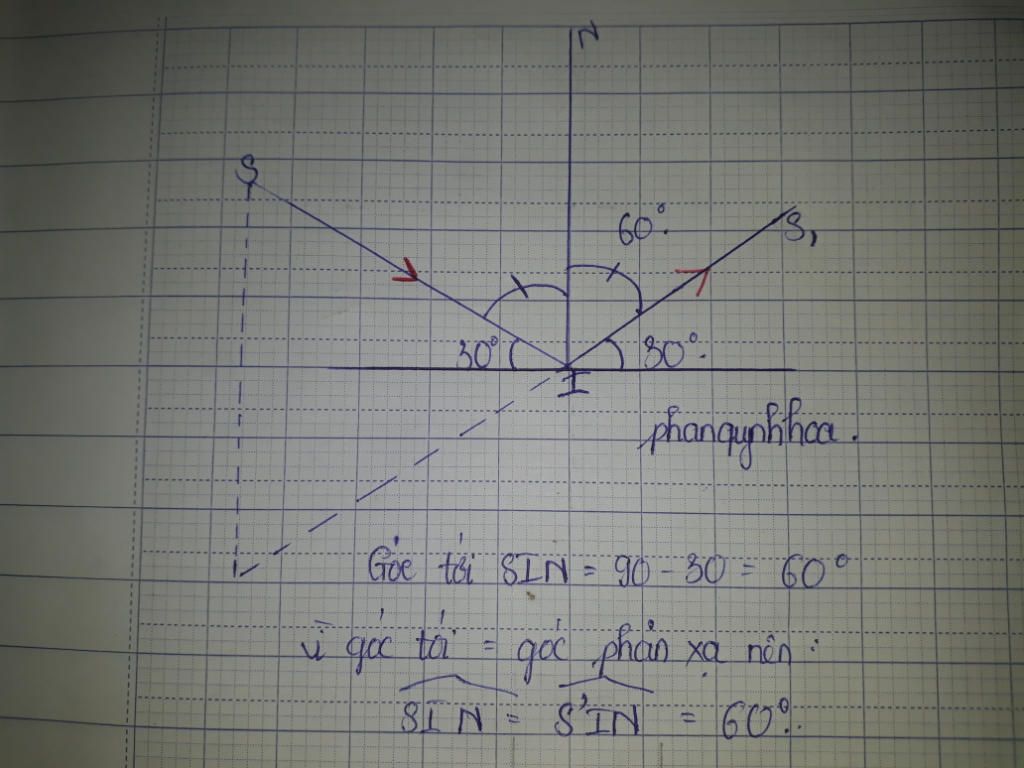 N
S
60°.
S,
30°
30°.
I
phanquynhhoa.
Góc tới SIN = 90 - 30 = 60°
Vì góc tới = góc phản xạ nên:
SIN = S'IN = 60°.